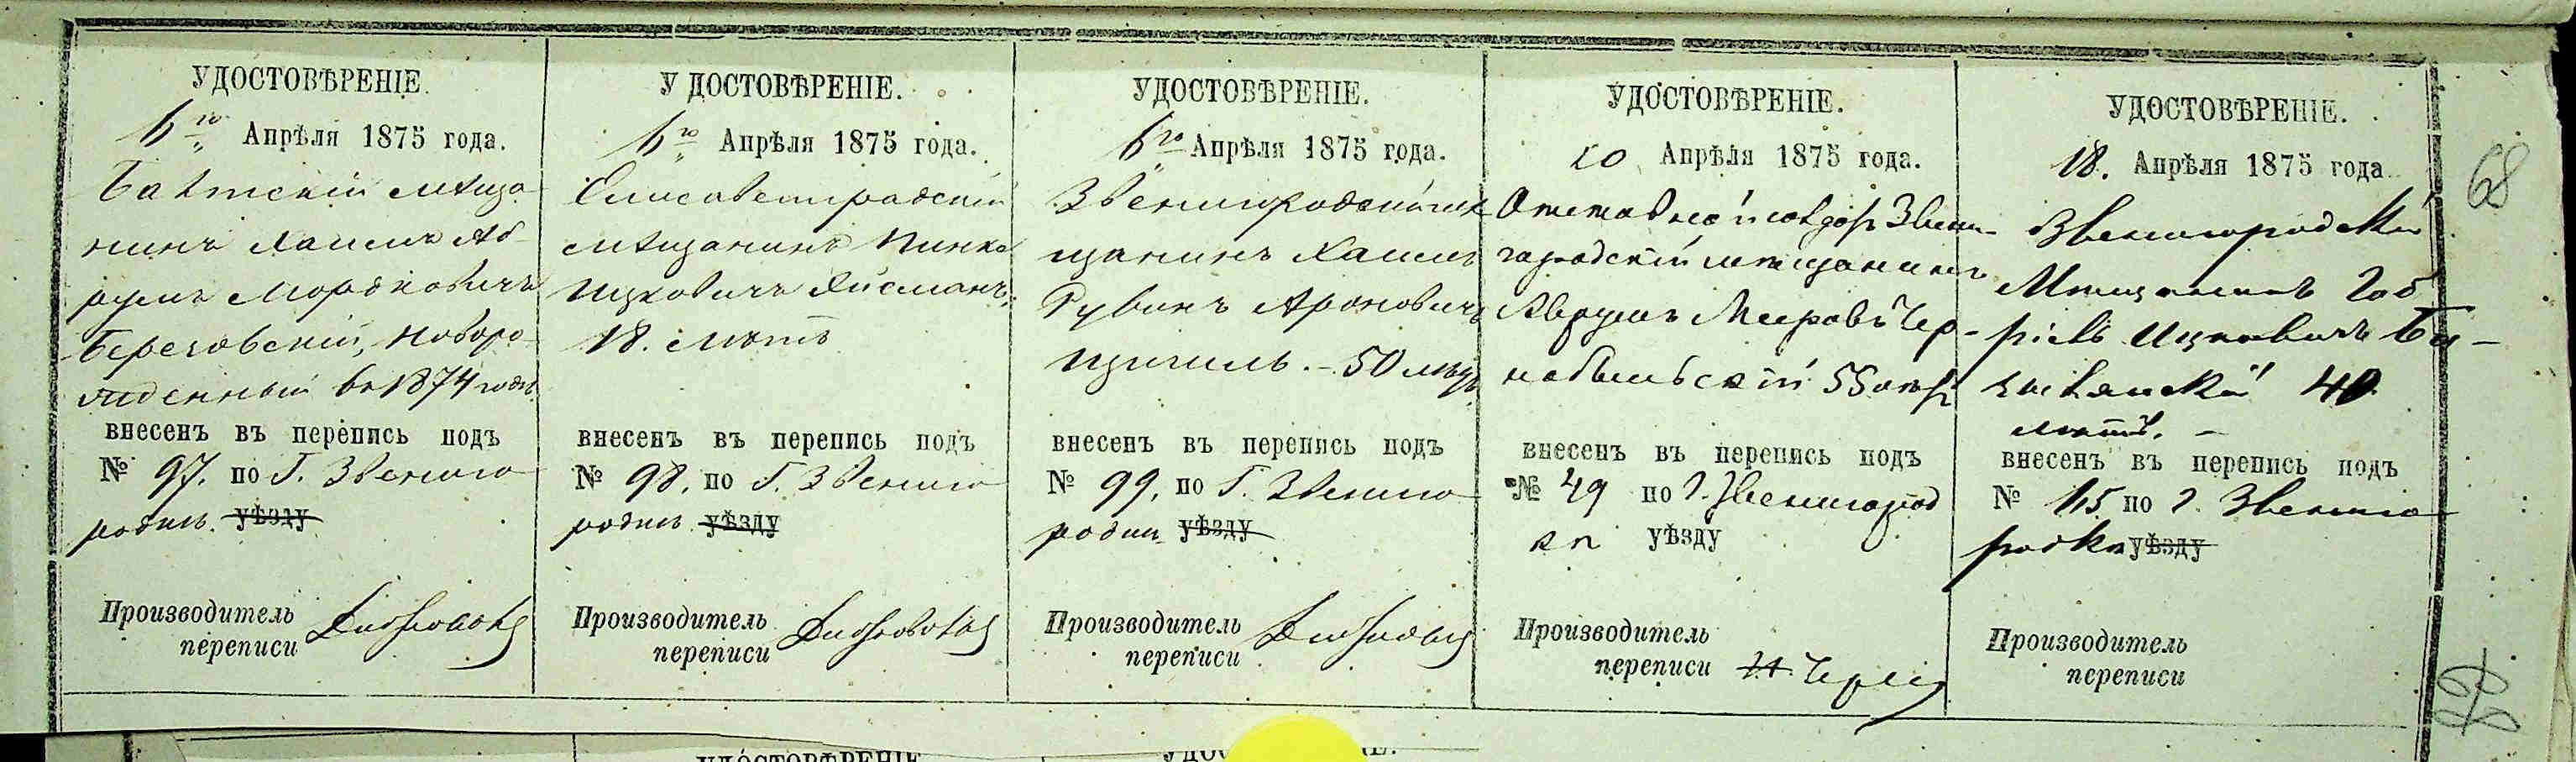 УДОСТОВѢРЕНІЕ.
6го Апрѣля 1875 года.
Балтскій мѣща-
нинъ Хаимъ Аб-
румъ Мордковичъ
Береговскій, новоро-
жденный въ 1874 годѣ
внесенъ въ перепись подъ
№ 97. по Г. Звениго
родкѣ. уѣзду
Производитель
переписи
УДОСТОВѢРЕНІЕ.
6го Апрѣля 1875 года.
Елисаветградскій
мѣщанинъ Пинхас
Ицковичъ
18. лѣтъ
внесенъ въ перепись подъ
№ 98. по Г. Звениго
родкѣ уѣзду
Производитель
переписи
УДОСТОВѢРЕНІЕ.
6го Апрѣля 1875 года.
Звенигородскій мѣ
щанинъ Хаимъ
Рувинъ Ароновичъ
50 лѣтъ
внесенъ въ перепись подъ
№ 99. по Г. Звениго
родки уѣзду
Производитель
переписи
УДОСТОВѢРЕНІЕ.
10 Апрѣля 1875 года.
Отставной Звени-
городскій мѣщанинъ
Аврумъ Мееровъ Чер-
нобыльскій 55
внесенъ въ перепись подъ
№ 49 по г. Звенигород
кѣ уѣзду
Производитель
переписи
УДОСТОВѢРЕНІЕ.
18. Апрѣля 1875 года
Звенигородскій
Мѣщанинъ Габ
ріель Ицковичъ
40
лѣтъ. —
внесенъ въ перепись подъ
№ 115 по г. Звениго
родкѣ уѣзду
Производитель
переписи
68
УДОСТОВѢРЕНІЕ